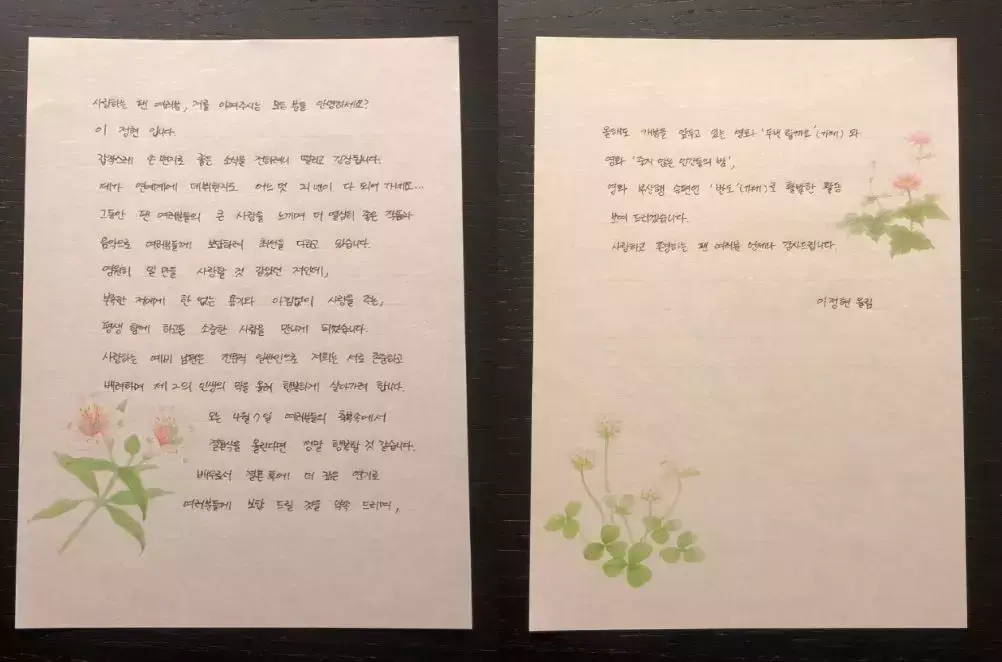 사랑하는 팬 여러분, 저를 아껴주시는 모든 분들 안녕하세요?
이 정현 입니다.
갑작스레 손 편지로 좋은 소식을 전하려니 떨리고 긴장됩니다.
제가 연예계에 데뷔한지도 어느 덧 21년이 다 되어 가네요...
그동안 팬 여러분들의 큰 사랑을 느끼며 더 열심히 좋은 작품과
음악으로 여러분들께 보답하려 최선을 다하고 있습니다.
영원히 일 만을 사랑할 것 같았던 저인데,
부족한 저에게 한 없는 용기와 아낌없이 사랑을 주는,
평생 함께 하고픈 소중한 사람을 만나게 되었습니다.
사랑하는 예비 남편은 전문직 일반인으로 저희는 서로 존중하고
배려하며 제 2의 인생의 막을 올려 행복하게 살아가려 합니다.
오는 4월 7일 여러분들의 축복속에서
결혼식을 올린다면 정말 행복할 것 같습니다.
배우로서 결혼 후에 더 깊은 연기로
여러분들께 보답 드릴 것을 약속 드리며,
올해도 개봉을 앞두고 있는 영화 '두번할까요'(가제) 와
영화 '죽지 않는 인간들의 밤',
영화 부산행 속편인 '반도'(가제)로 활발한 활동
보여 드리겠습니다.
사랑하고 존경하는 팬 여러분 언제나 감사드립니다.
이정현 올림